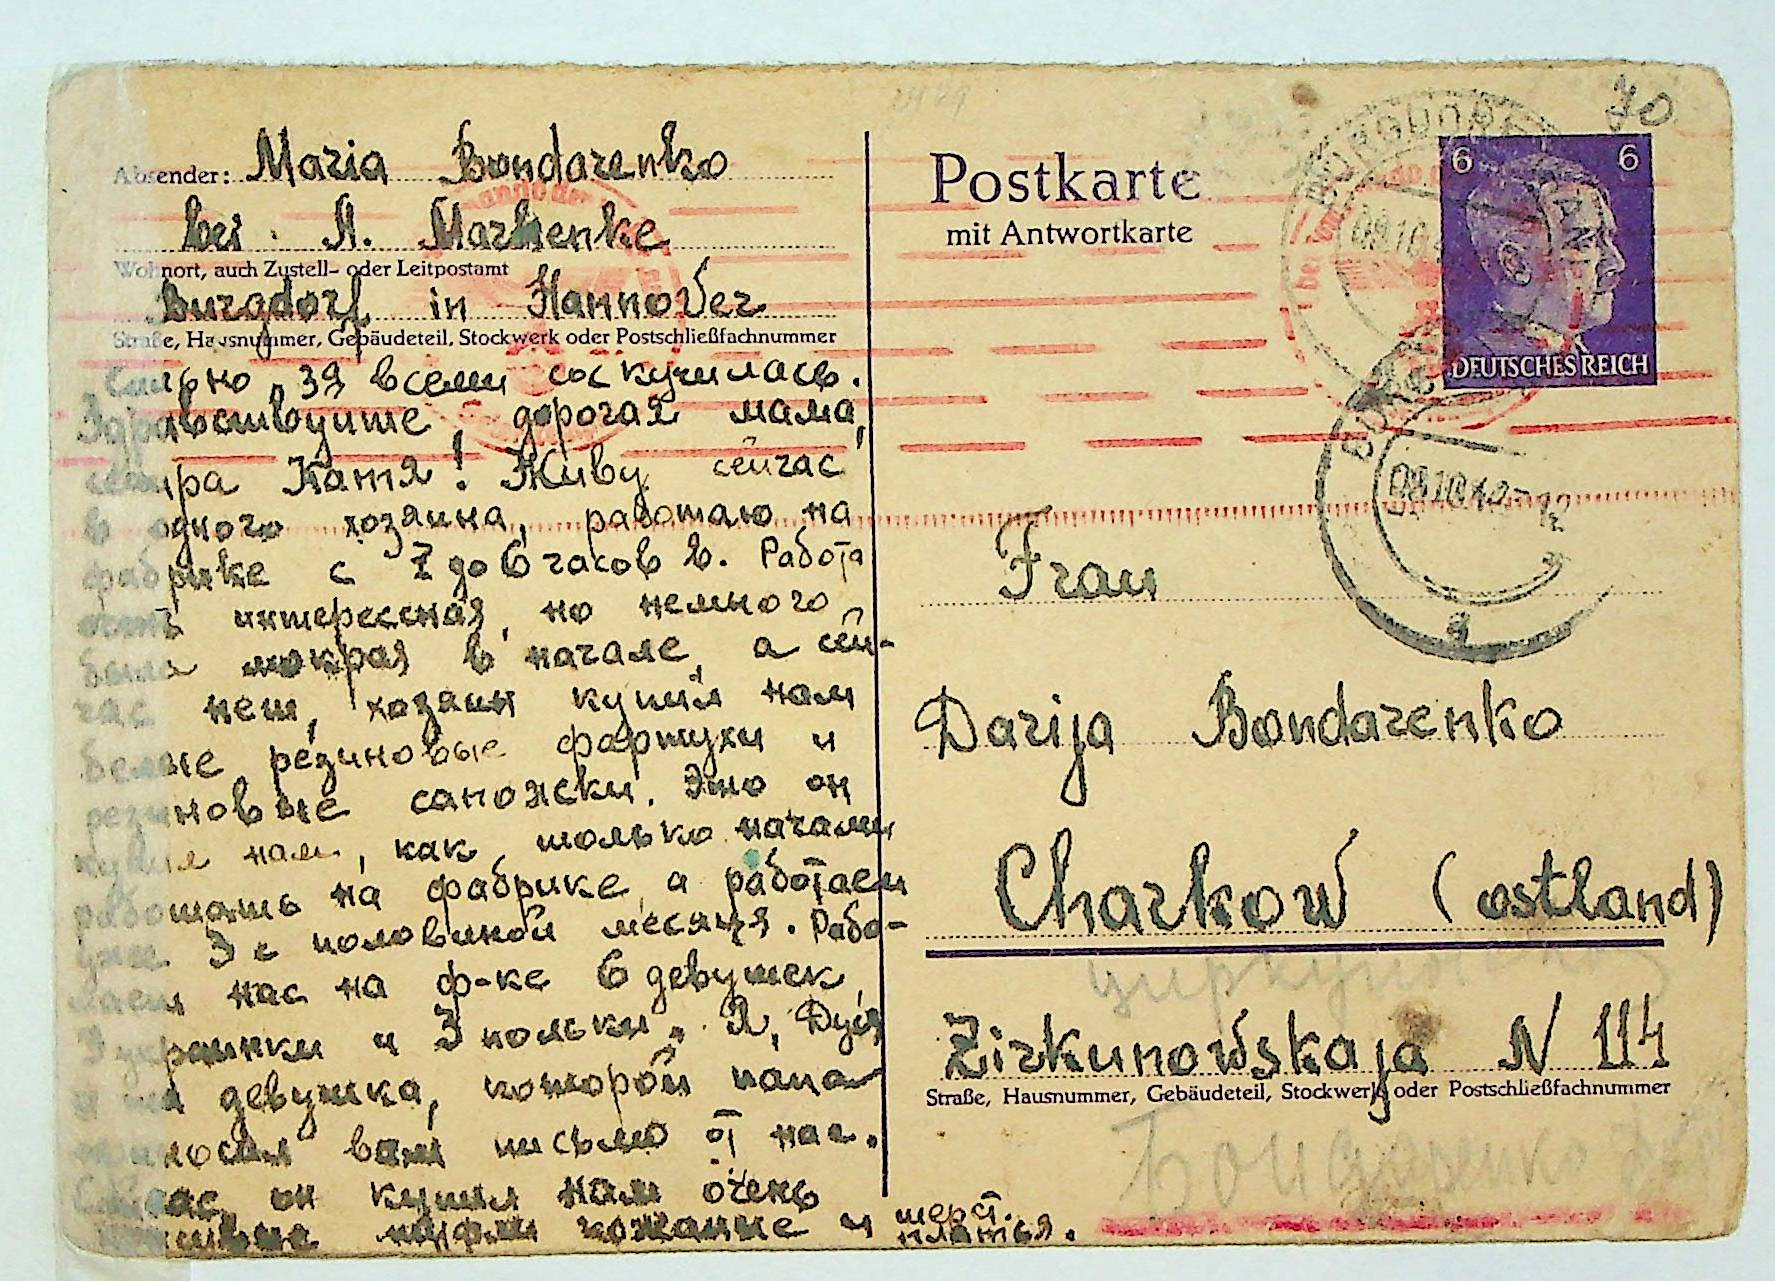 Absender: Maria Bondarenko
bei A. Marhenke
Wohnort, auch Zustell- oder Leitpostamt
Burgdorf in Hannover
Straße, Hausnummer, Gebäudeteil, Stockwerk oder Postschließfachnummer
Сильно за всеми соскучилась.
Здравствуйте, дорогая мама,
сестра Катя! Живу сейчас
в одного хозяина, работаю на
фабрике с 7 до 6 часов в. Работа
очень интересная, но немного
была мокрая в начале, а сей-
час нет, хозяин купил нам
белые резиновые фартухи и
резиновые сапожски. Это он
купил нам, как только начали
работать на фабрике, а работаем
уже 3 с половиной месяця. Рабо-
таем нас на ф-ке 6 девушек,
3 украинки и 3 польки. Я, Дуся
и та девушка, которой папа
приносил вам письмо от нас.
Сейчас он купил нам очень
туфли кожание и шерст.
платья.
Postkarte
mit Antwortkarte
6 6
DEUTSCHES REICH
70
BURGDORF
08.10.42
Frau
Darija Bondarenko
Charkow (ostland)
Zirkunowskaja N 114
Straße, Hausnummer, Gebäudeteil, Stockwerk oder Postschließfachnummer
Бондаренко